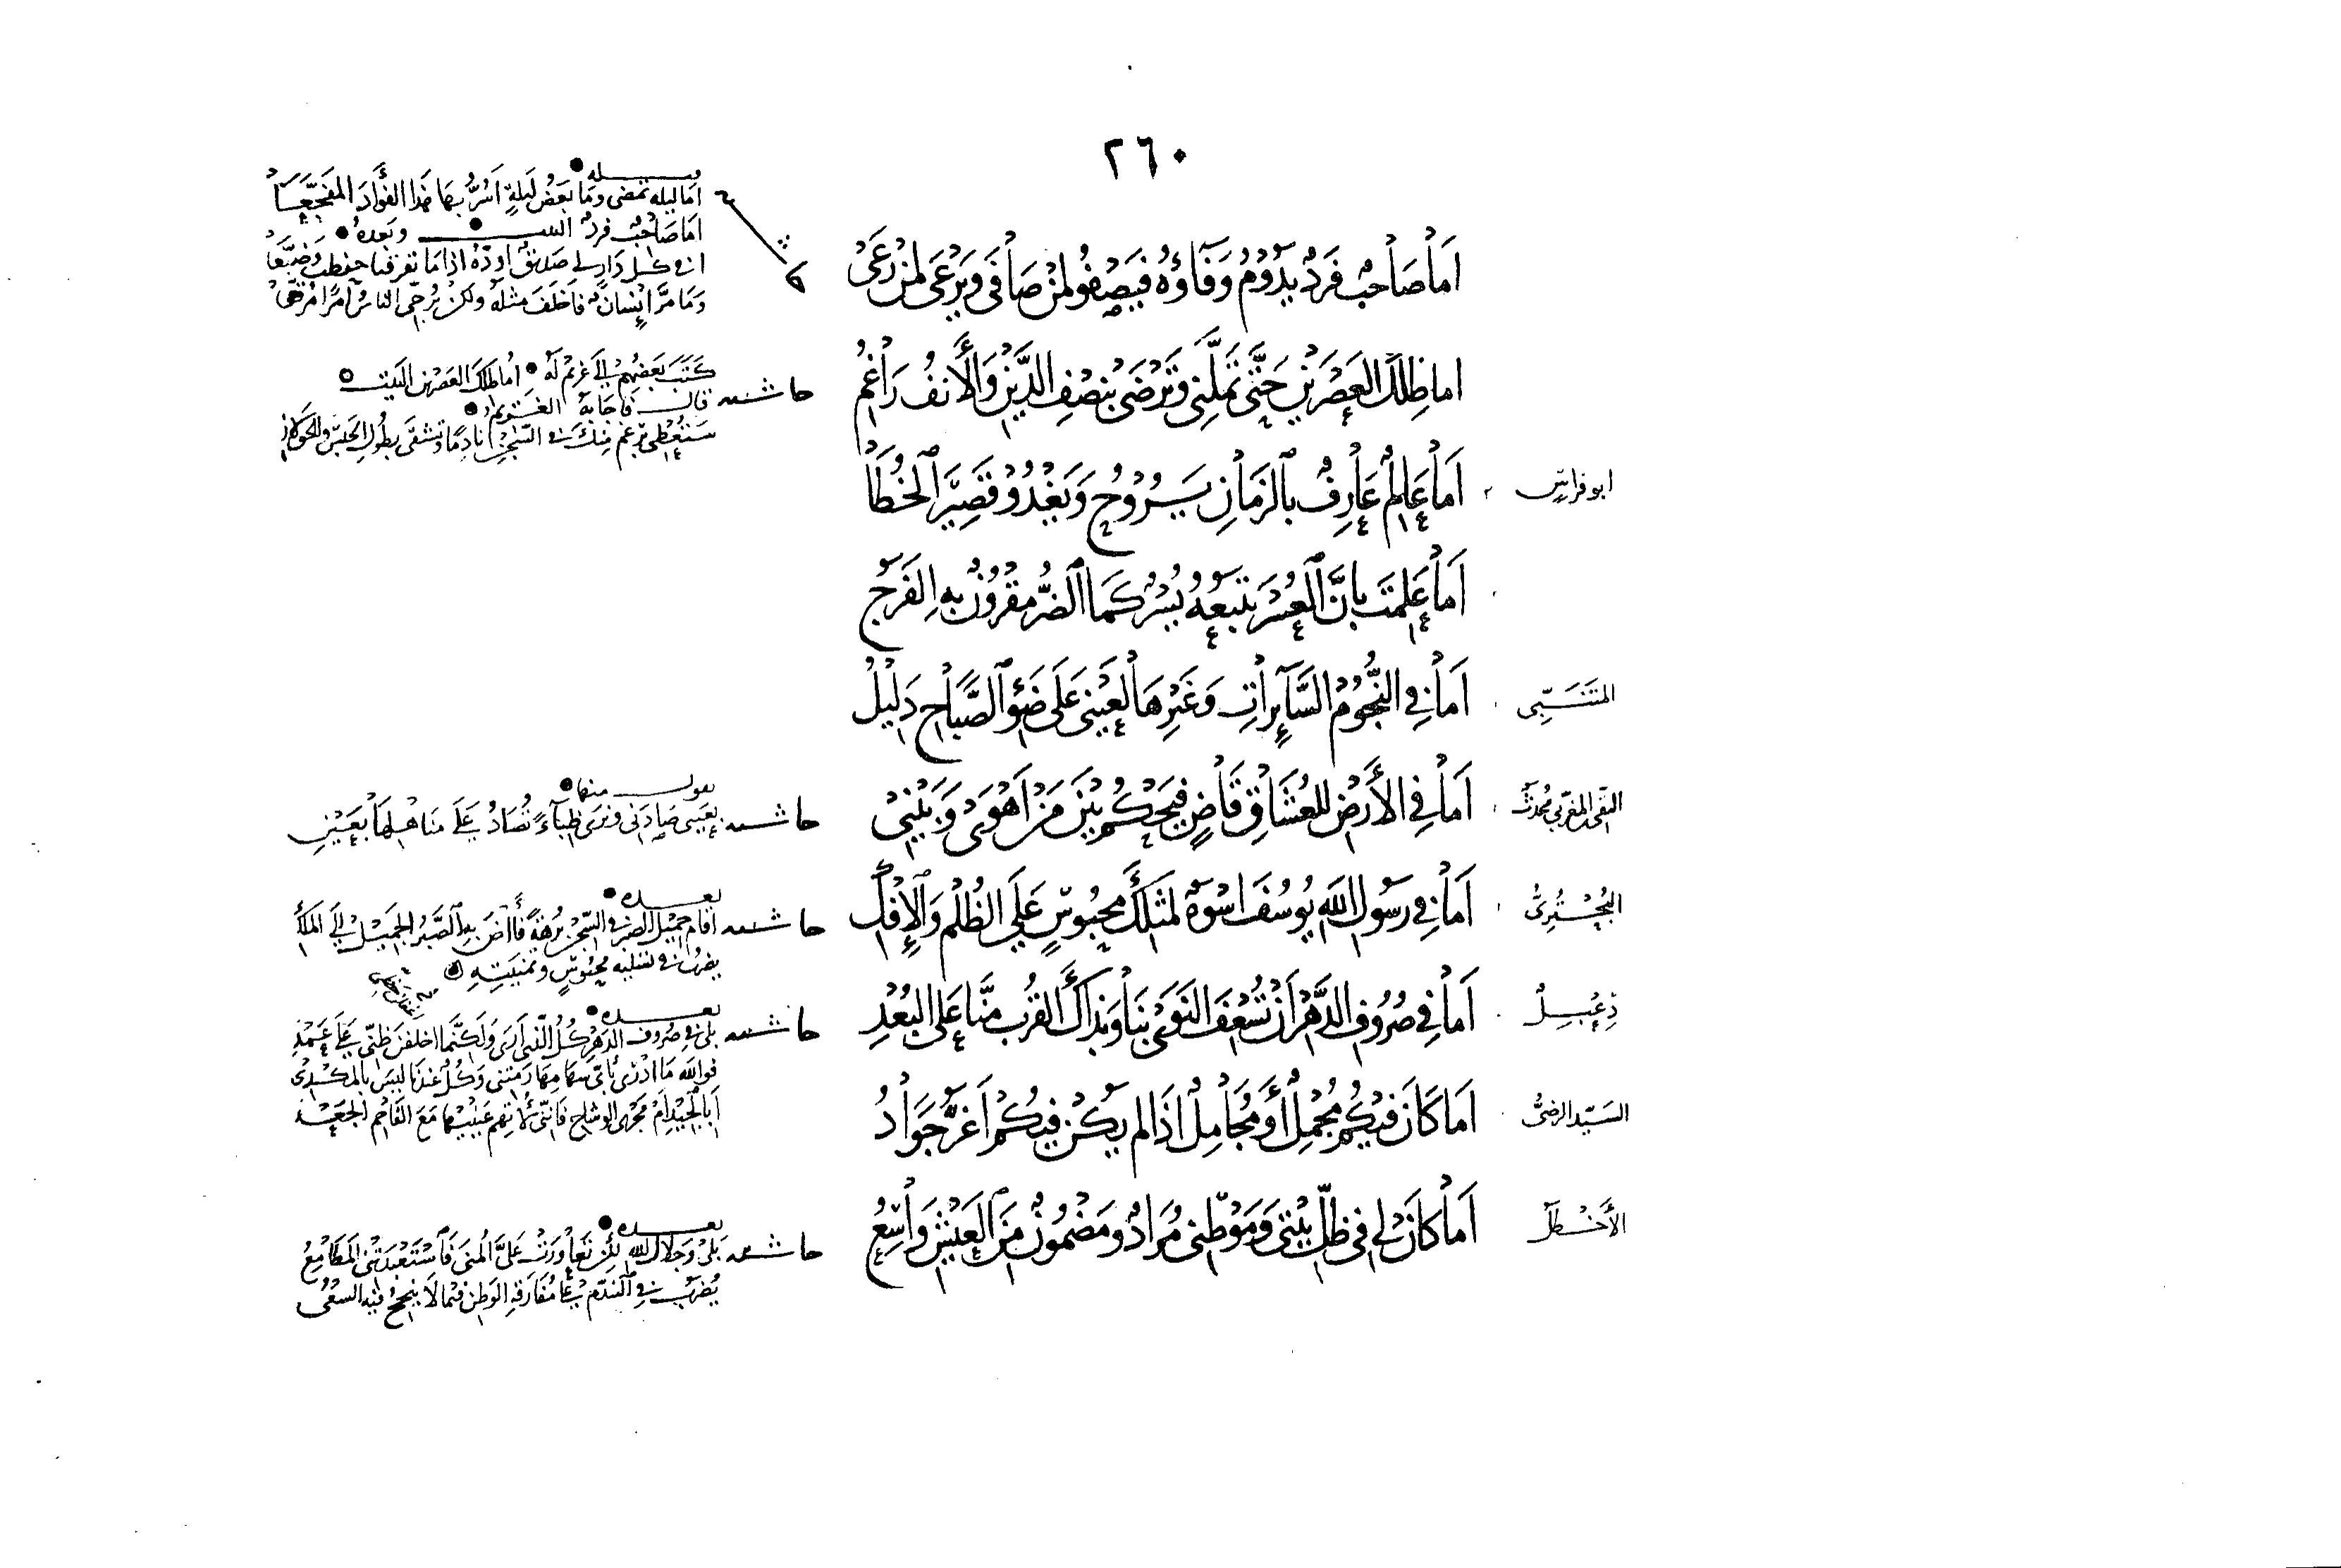 ٢٦٠
أَمَا صَاحِبٌ فَرْدٌ يَدُوْمُ وَفَاؤُهُ فَيَصْفُو لِمَنْ صَافَى وَيَرْعَى لِمَنْ رَعَى
قبله
أما ليلة تمضى وما بعض ليلة أسر بها هذا الفؤاد المفجعا
أما صاحب فرد البيت وبعده
أفي كل دار لي صديق أوده إذا ما تفرقنا حفظت وضيعا
وما مر إنسان فأخلف مثله ولكن يرجى الناس أمرا مرقعا
اماطلك العصرين حَتَّى تَمَلَّنِي وَتَرْضَى بِنِصْفِ الدَّيْنِ وَالْأَنْفُ رَاغِمُ
حاشية
كتب بعضهم إلى غريم له أماطلك العصرين البيت
قال فأجابه الغريم
ابو فراس
أَمَا عَالِمٌ عَارِفٌ بِالزَّمَانِ يَرُوْحُ وَيَغْدُوْ قَصِيْرَ الْخُطَا
أَمَا عَلِمْتَ بِأَنَّ الْعُسْرَ يَتْبَعُهُ يُسْرٌ كَمَا الضُّرُّ مَقْرُوْنٌ بِهِ الفَرَجُ
المتنبى
أَمَا فِي النُّجُوْمِ السَّائِرَاتِ وَغَيْرِهَا لِعَيْنِي عَلَى ضَوْءِ الصَّبَاحِ دَلِيْلُ
التقى المغربي محدث
أَمَا فِي الأَرْضِ لِلْعُشَّاقِ قَاضٍ فَيَحْكُمُ بَيْنَ مَنْ أَهْوَى وَبَيْنِي
حاشية
يقول منها
البُحْتُرِىُّ
أَمَا فِي رَسُوْلِ اللهِ يُوْسُفَ أُسْوَةٌ لِمِثْلِكَ مَحْبُوْسٍ عَلَى الظُّلْمِ وَالْإِفْكِ
حاشية
بعده
أقام جميل الصبر في السجن برهة فآض به الصبر الجميل إلى الملك
يضرب في تسلية محبوس وتمنيته
دِعْبِلُ
أَمَا فِي صُرُوْفِ الدَّهْرِ أَنْ تُسْعِفَ النَّوَى بِنَا وَبِذَاكَ القُرْبِ مِنَّا عَلَى الْبُعْدِ
حاشية
بعده
بلى في صروف الدهر كل الذي أرى ولكنما أخلفن ظني على عمد
فوالله ما أدري بأي سهامها رمتني وكل عندنا ليس بالمكدى
أبالجيد أم مجرى الوشاح فإنني لأتهم عينيها مع الفاحم الجعد
السيد الرضىُّ
أَمَا كَانَ فِيْكُمْ مُجْمِلٌ أَوْ مُجَامِلٌ إِذَا لَمْ يَكُنْ فِيْكُمْ أَغَرُّ جَوَادُ
الأخطل
أَمَا كَانَ لِي فِي ظِلِّ بَيْتِي وَمَوْطِنِي مُرَادٌ وَمَضْمُوْنٌ مِنَ الْعَيْشِ وَاسِعُ
حاشية
بعده
بلى وجلال الله لكن تعاورت علي المنى فاستعبدتني المطامع
يضرب في التندم على مفارقة الوطن فيما لا ينجح فيه السعى